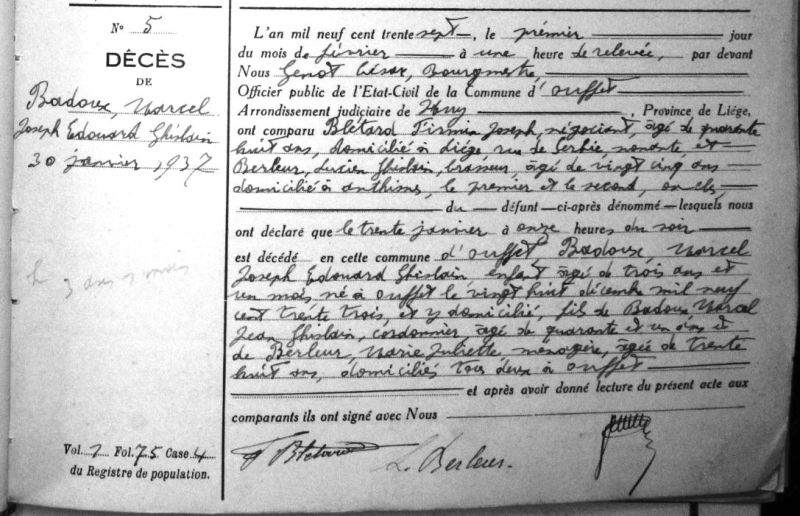 N° 5
DÉCÈS
DE
Badoux, Marcel
Joseph Edouard Ghislain
30 janvier 1937
3 ans 1 mois
Vol. 1 Fol. 75 Case 4
du Registre de population.
L'an mil neuf cent trente sept, le premier jour
du mois de février à une heure de relevée, par devant
Nous Genot César, Bourgmestre,
Officier public de l'Etat-Civil de la Commune d'Ouffet
Arrondissement judiciaire de Huy, Province de Liége,
ont comparu Blétard Firmin Joseph, négociant, âgé de quarante
huit ans, domicilié à Liége rue de Serbie nonante et
Berleur, Lucien Ghislain, brasseur, âgé de vingt cinq ans
domicilié à Anthisnes, le premier et le second, oncles
du défunt ci-après dénommé lesquels nous
ont déclaré que le trente janvier à onze heures du soir
est décédé en cette commune d'Ouffet, Badoux, Marcel
Joseph Edouard Ghislain enfant âgé de trois ans et
un mois, né à Ouffet le vingt huit décembre mil neuf
cent trente trois, et y domicilié, fils de Badoux Marcel
Jean Ghislain, cordonnier âgé de quarante et un ans et
de Berleur, Marie Juliette, ménagère, âgée de trente
huit ans, domiciliés tous deux à Ouffet
et après avoir donné lecture du présent acte aux
comparants ils ont signé avec Nous
F Bletard
L. Berleur.